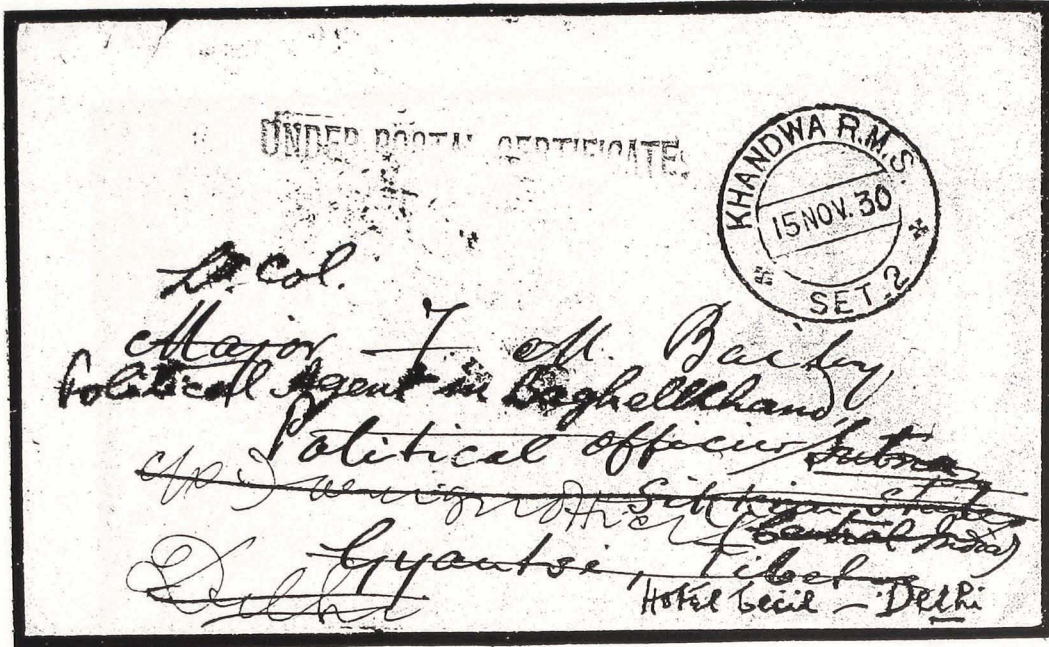 UNDER POSTAL CERTIFICATE.
KHANDWA R.M.S.
15 NOV. 30
SET. 2
Lt. Col.
Major F M. Bailey,
Political Agent in Baghelkhand,
Political Officer Sutna
c/o Foreign Office Sikkim, State
(Central India)
Gyantse, Tibet
Delhi
Hotel Cecil – Delhi